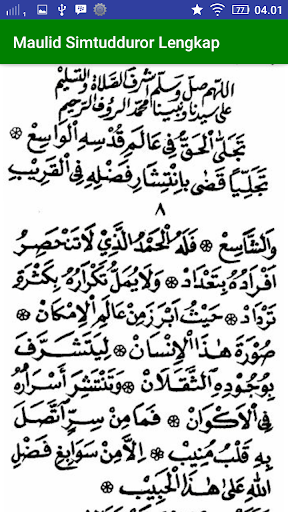 04.01
Maulid Simtudduror Lengkap
اللهم صل وسلم أشرف الصلاة والتسليم
على سيدنا ونبينا محمد الرؤف الرحيم
تَجَلَّى الْحَقُّ فِي عَالَمِ قُدْسِهِ الْوَاسِعْ ۞
تَجَلِّيًا قَضَى بِانْتِشَارِ فَضْلِهِ فِي الْقَرِيْبِ
٨
وَالشَّاسِعْ ۞ فَلَهُ الْحَمْدُ الَّذِيْ لَا تَنْحَصِرُ
اَفْرَادُهُ بِتَعْدَادْ ۞ وَلَا يُمَلُّ تَكْرَارُهُ بِكَثْرَةِ
تَرْدَادْ ۞ حَيْثُ اَبْرَزَ مِنْ عَالَمِ الْاِمْكَانْ ۞
صُوْرَةَ هٰذَا الْاِنْسَانْ ۞ لِيَتَشَرَّفَ
بِوُجُوْدِهِ الثَّقَلَانْ ۞ وَتَنْتَشِرَ اَسْرَارُهُ
فِي الْاَكْوَانْ ۞ فَمَا مِنْ سِرٍّ اتَّصَلَ
بِهِ قَلْبُ مُنِيْبْ ۞ اِلَّا مِنْ سَوَابِغِ فَضْلِ
اللهِ عَلَى هٰذَا الْحَبِيْبْ ۞